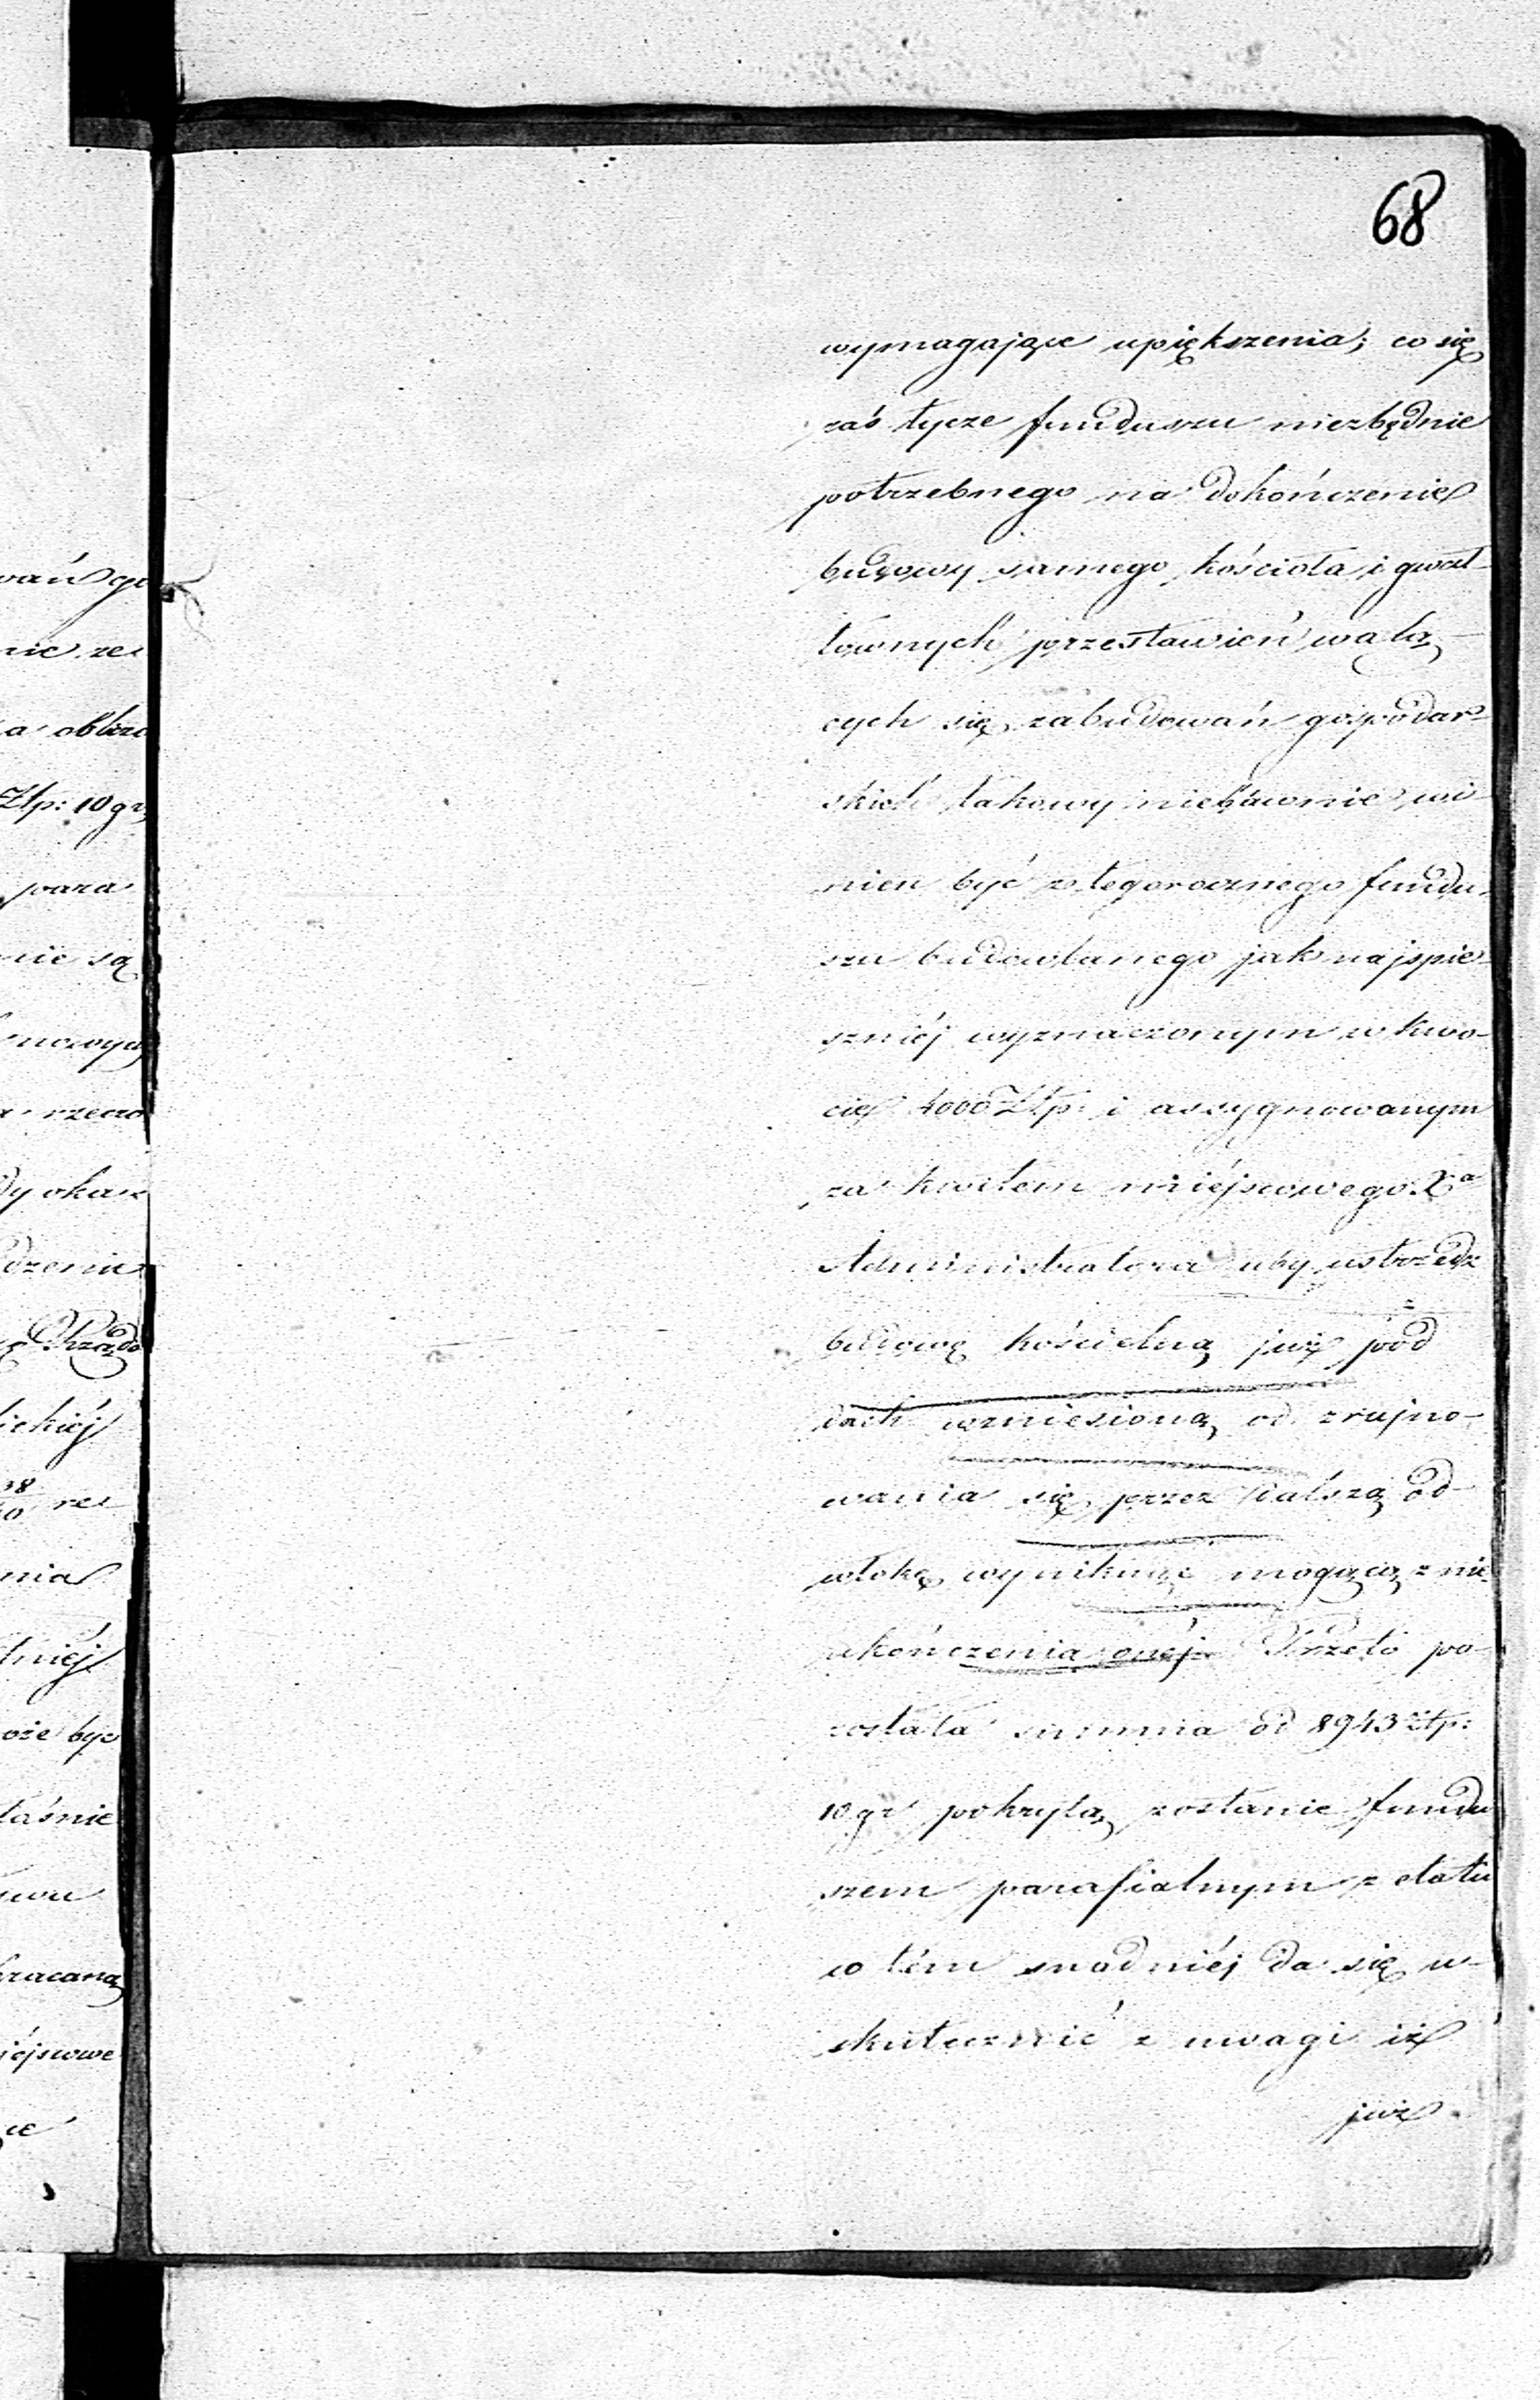 68
wymagające upiększenia; co się
zaś tycze funduszu niezbędnie
potrzebnego na dokończenie
budowy samego kościoła i gwał-
townych przestawień walą-
cych się zabudowań gospodar-
skich takowy niebawnie wi-
nien być z tegorocznego fundu-
szu budowlanego jak najspie-
szniéj wyznaczonym w kwo-
cie 4000 Złp: i assygnowanym
za kwitem miéjscowego Xa
Administratora aby ustrzedz
budowę kościelną już pod
dach wzniesioną od zrujno-
wania się przez dalszą od-
włokę wyniknąć mogącą z nie
ukończenia onéj. Przeto po-
została summa od 8943 złp:
10 gr pokrytą zostanie fundu
szem parafialnym z etatu
co tém snadniéj da się u-
skutecznić z uwagi iż
już
wań go
nie ze
a obliczo
Złp: 10 gr,
para
nie są
nowych
rzeczo
dy okaz
dzenia
Rządo
ickiéj
38
re
nia
tniéj
oże być
łaśnie
kracaną
iéjscowe